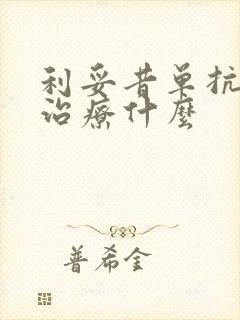 利妥昔单抗
治療什麼
普希金